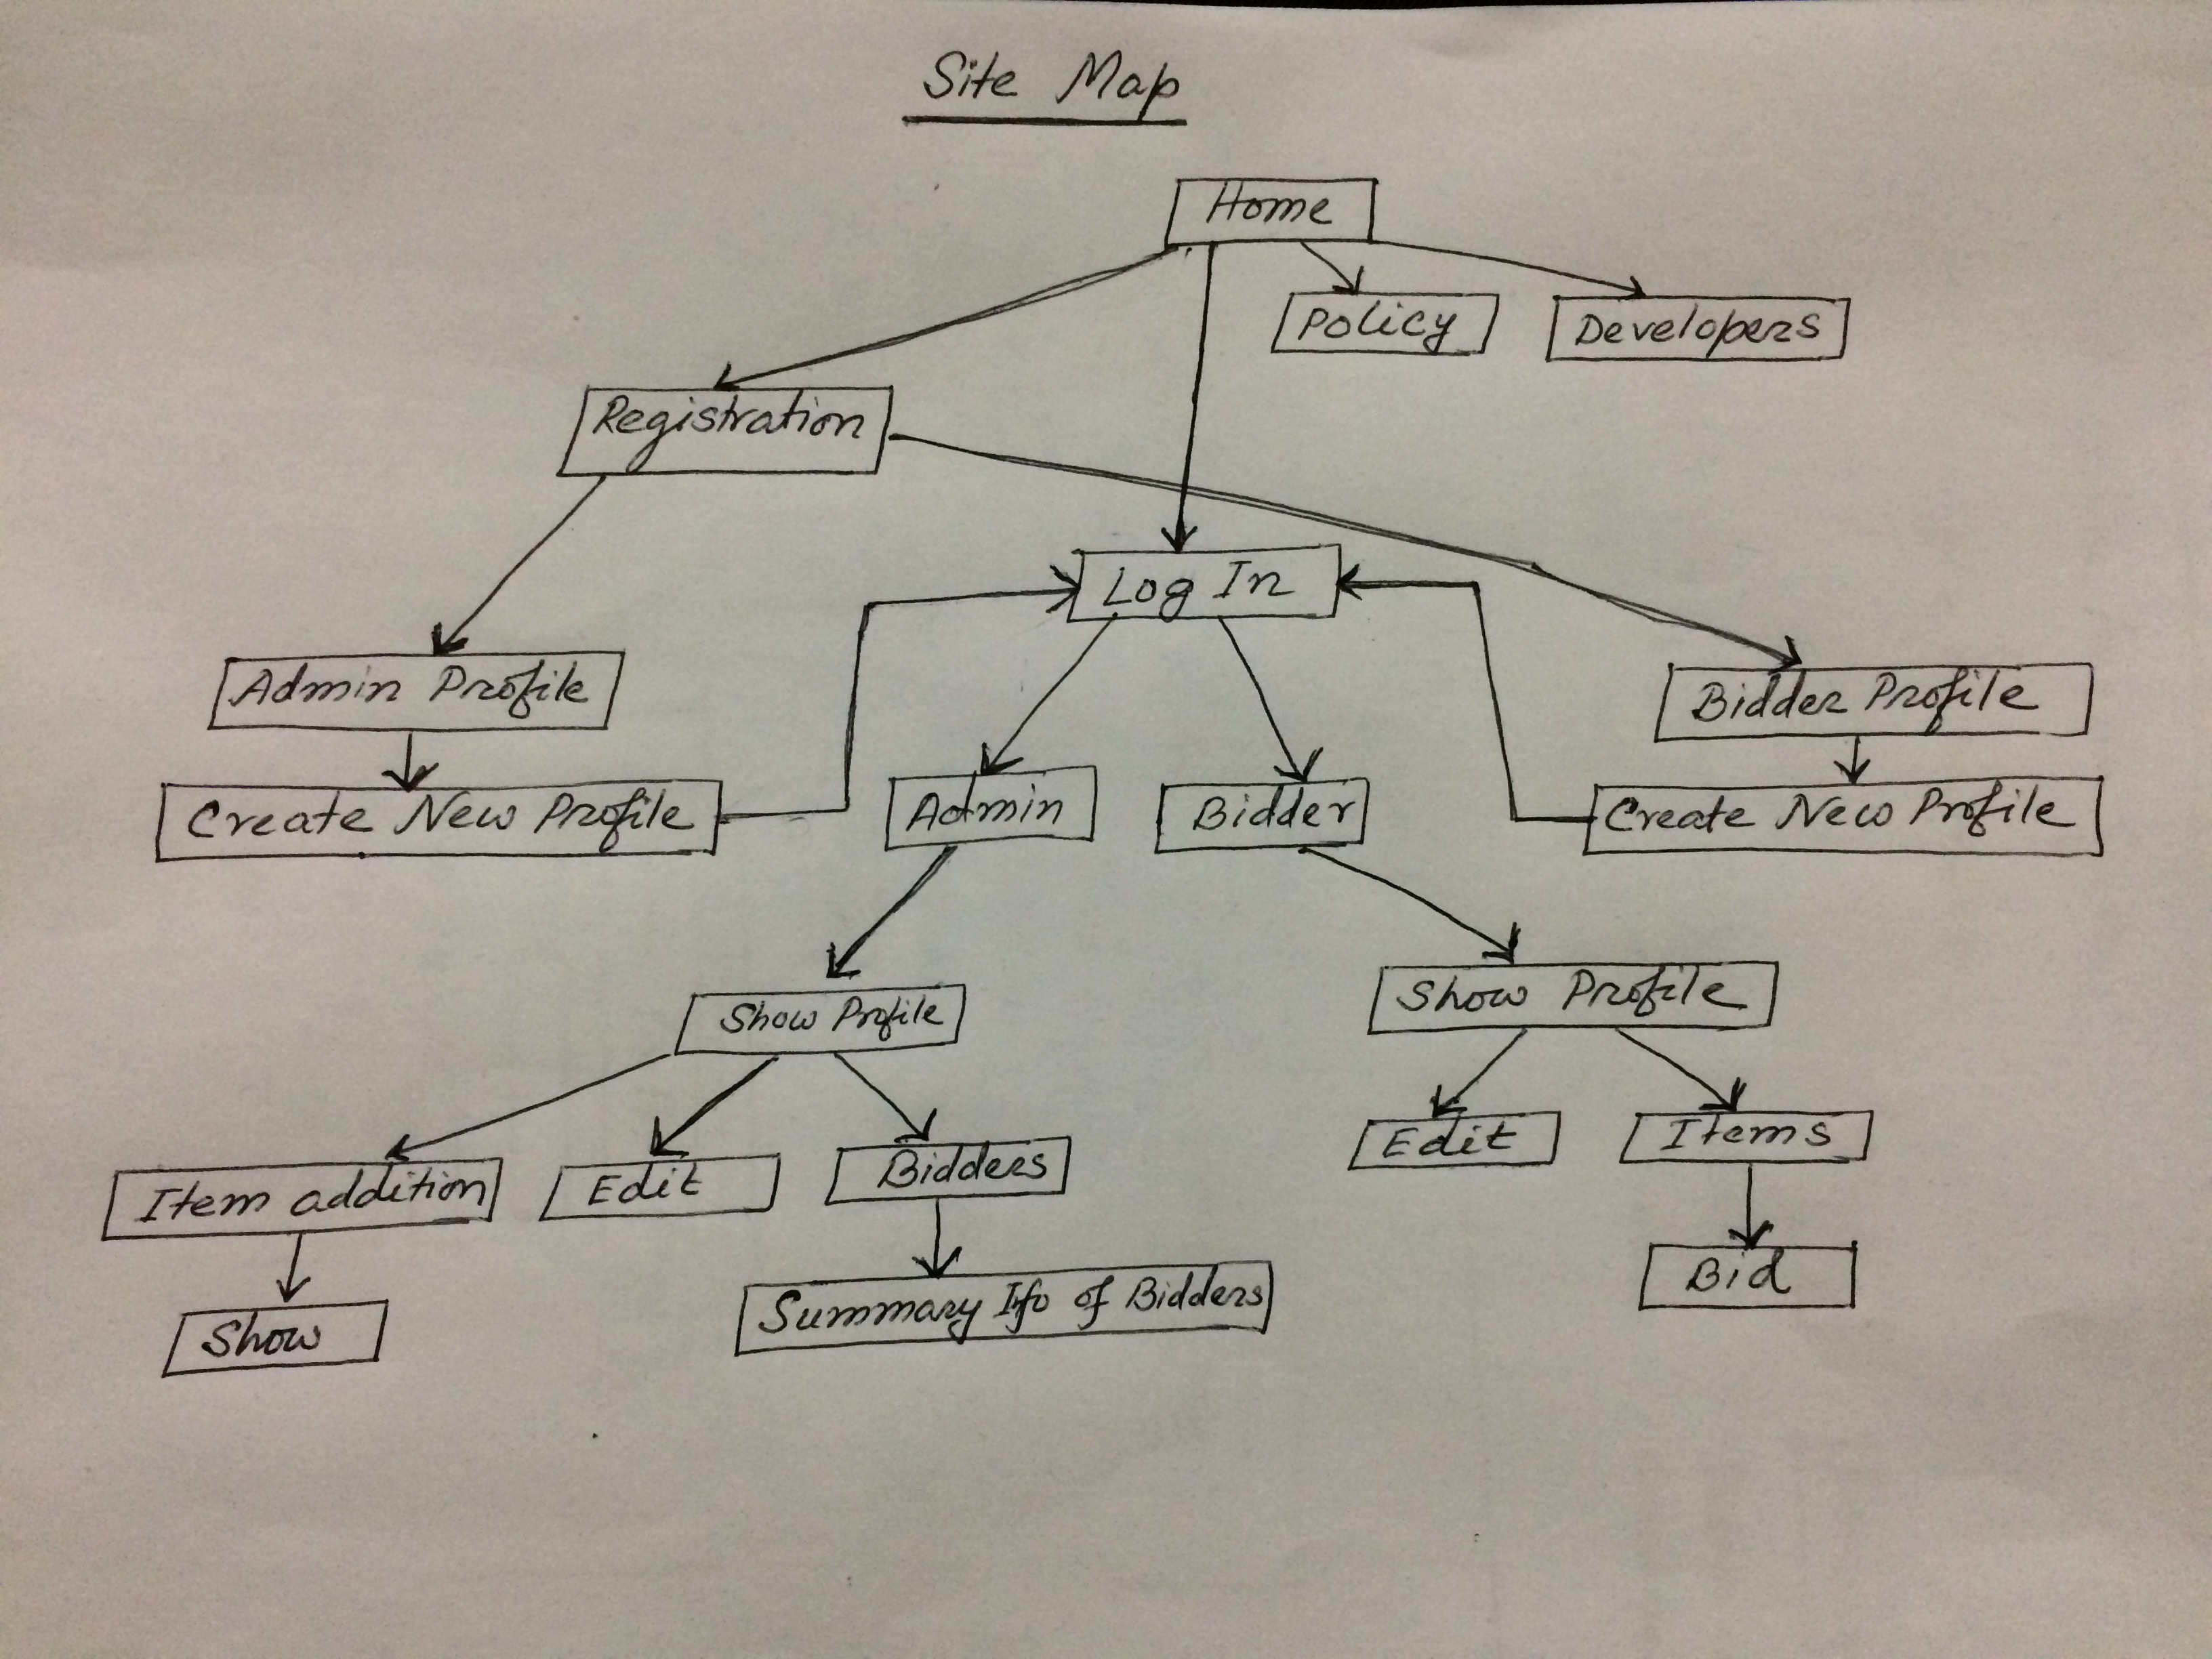 Site Map
Home
Policy
Developers
Registration
Log In
Admin Profile
Bidder Profile
Create New Profile
Admin
Bidder
Create New Profile
Show Profile
Show Profile
Item addition
Edit
Bidders
Edit
Items
Summary Ifo of Bidders
Bid
Show